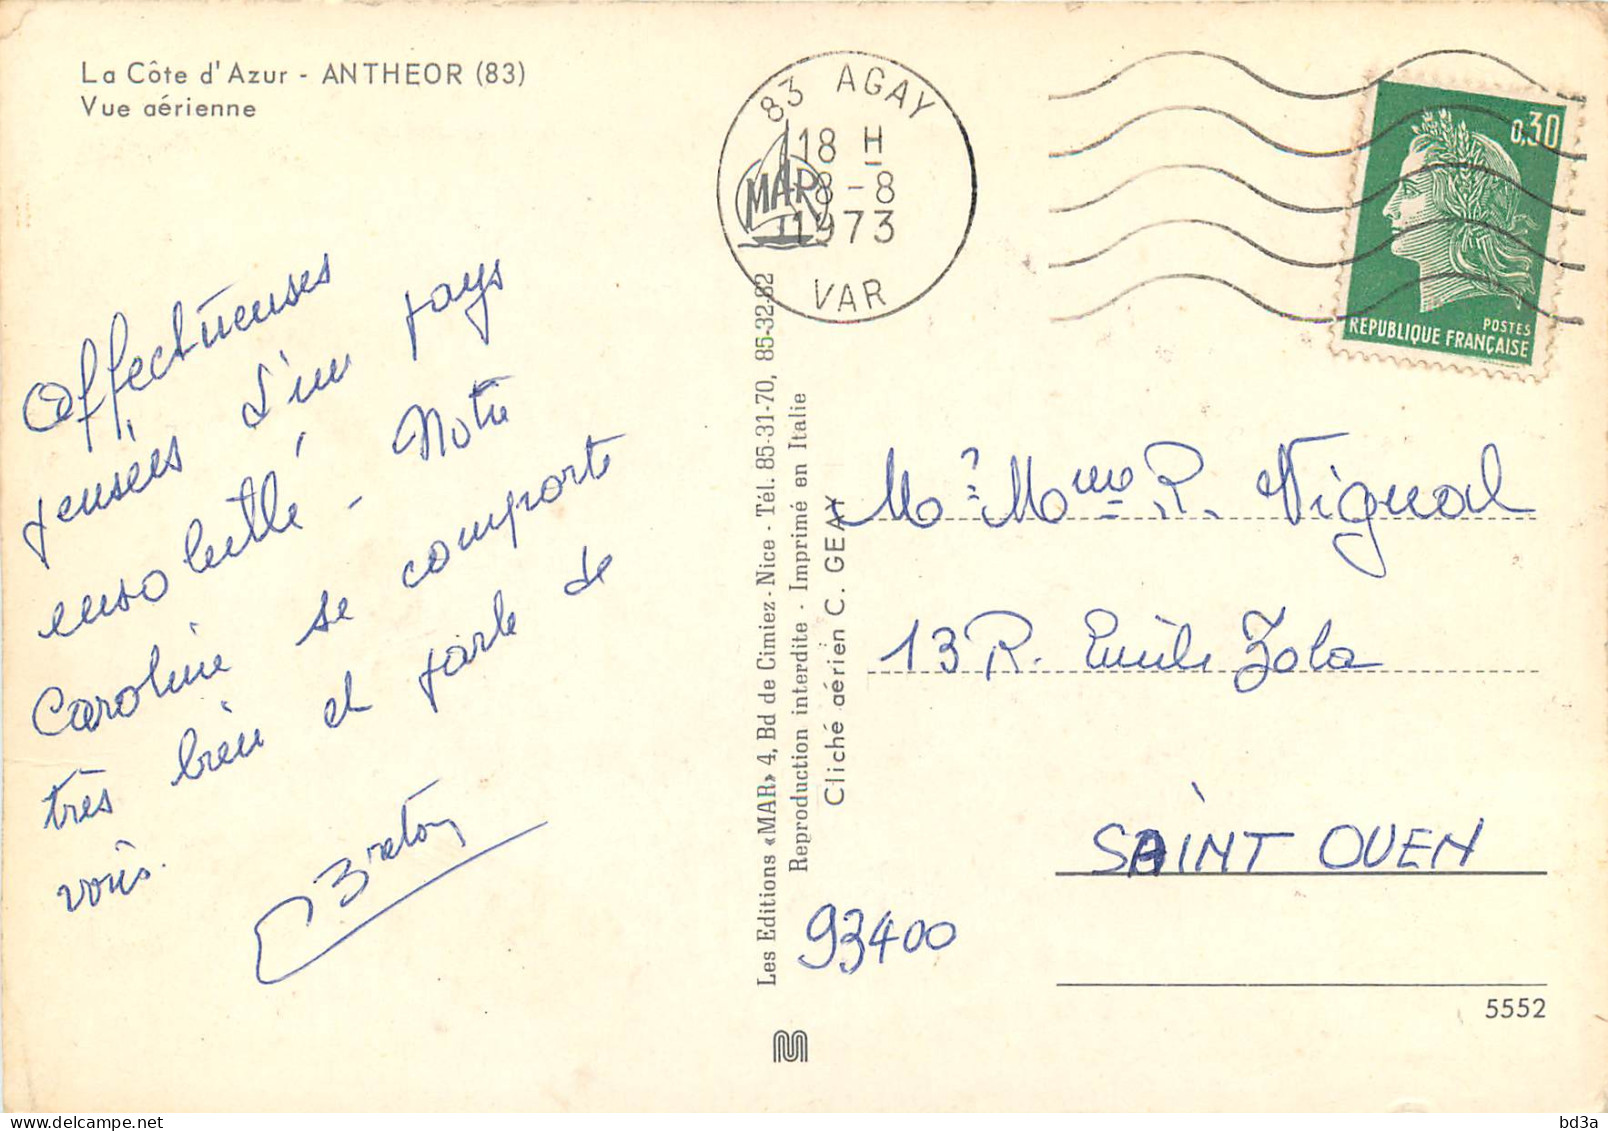 La Côte d'Azur - ANTHEOR (83)
Vue aérienne
83 AGAY
18 H
8-8
1973
VAR
MAR
0,30
POSTES
REPUBLIQUE FRANÇAISE
Affectueuses
pensées d'un pays
ensoleillé - Notre
Caroline se comporte
très bien et parle de
vous.
Breton
Les Editions «MAR» 4, Bd de Cimiez - Nice - Tél. 85-31-70, 85-32-82
Reproduction interdite - Imprimé en Italie
Cliché aérien C. GEAY
Mr Mme R. Vignal
13 R. Emile Zola
SAINT OUEN
93400
5552
bd3a